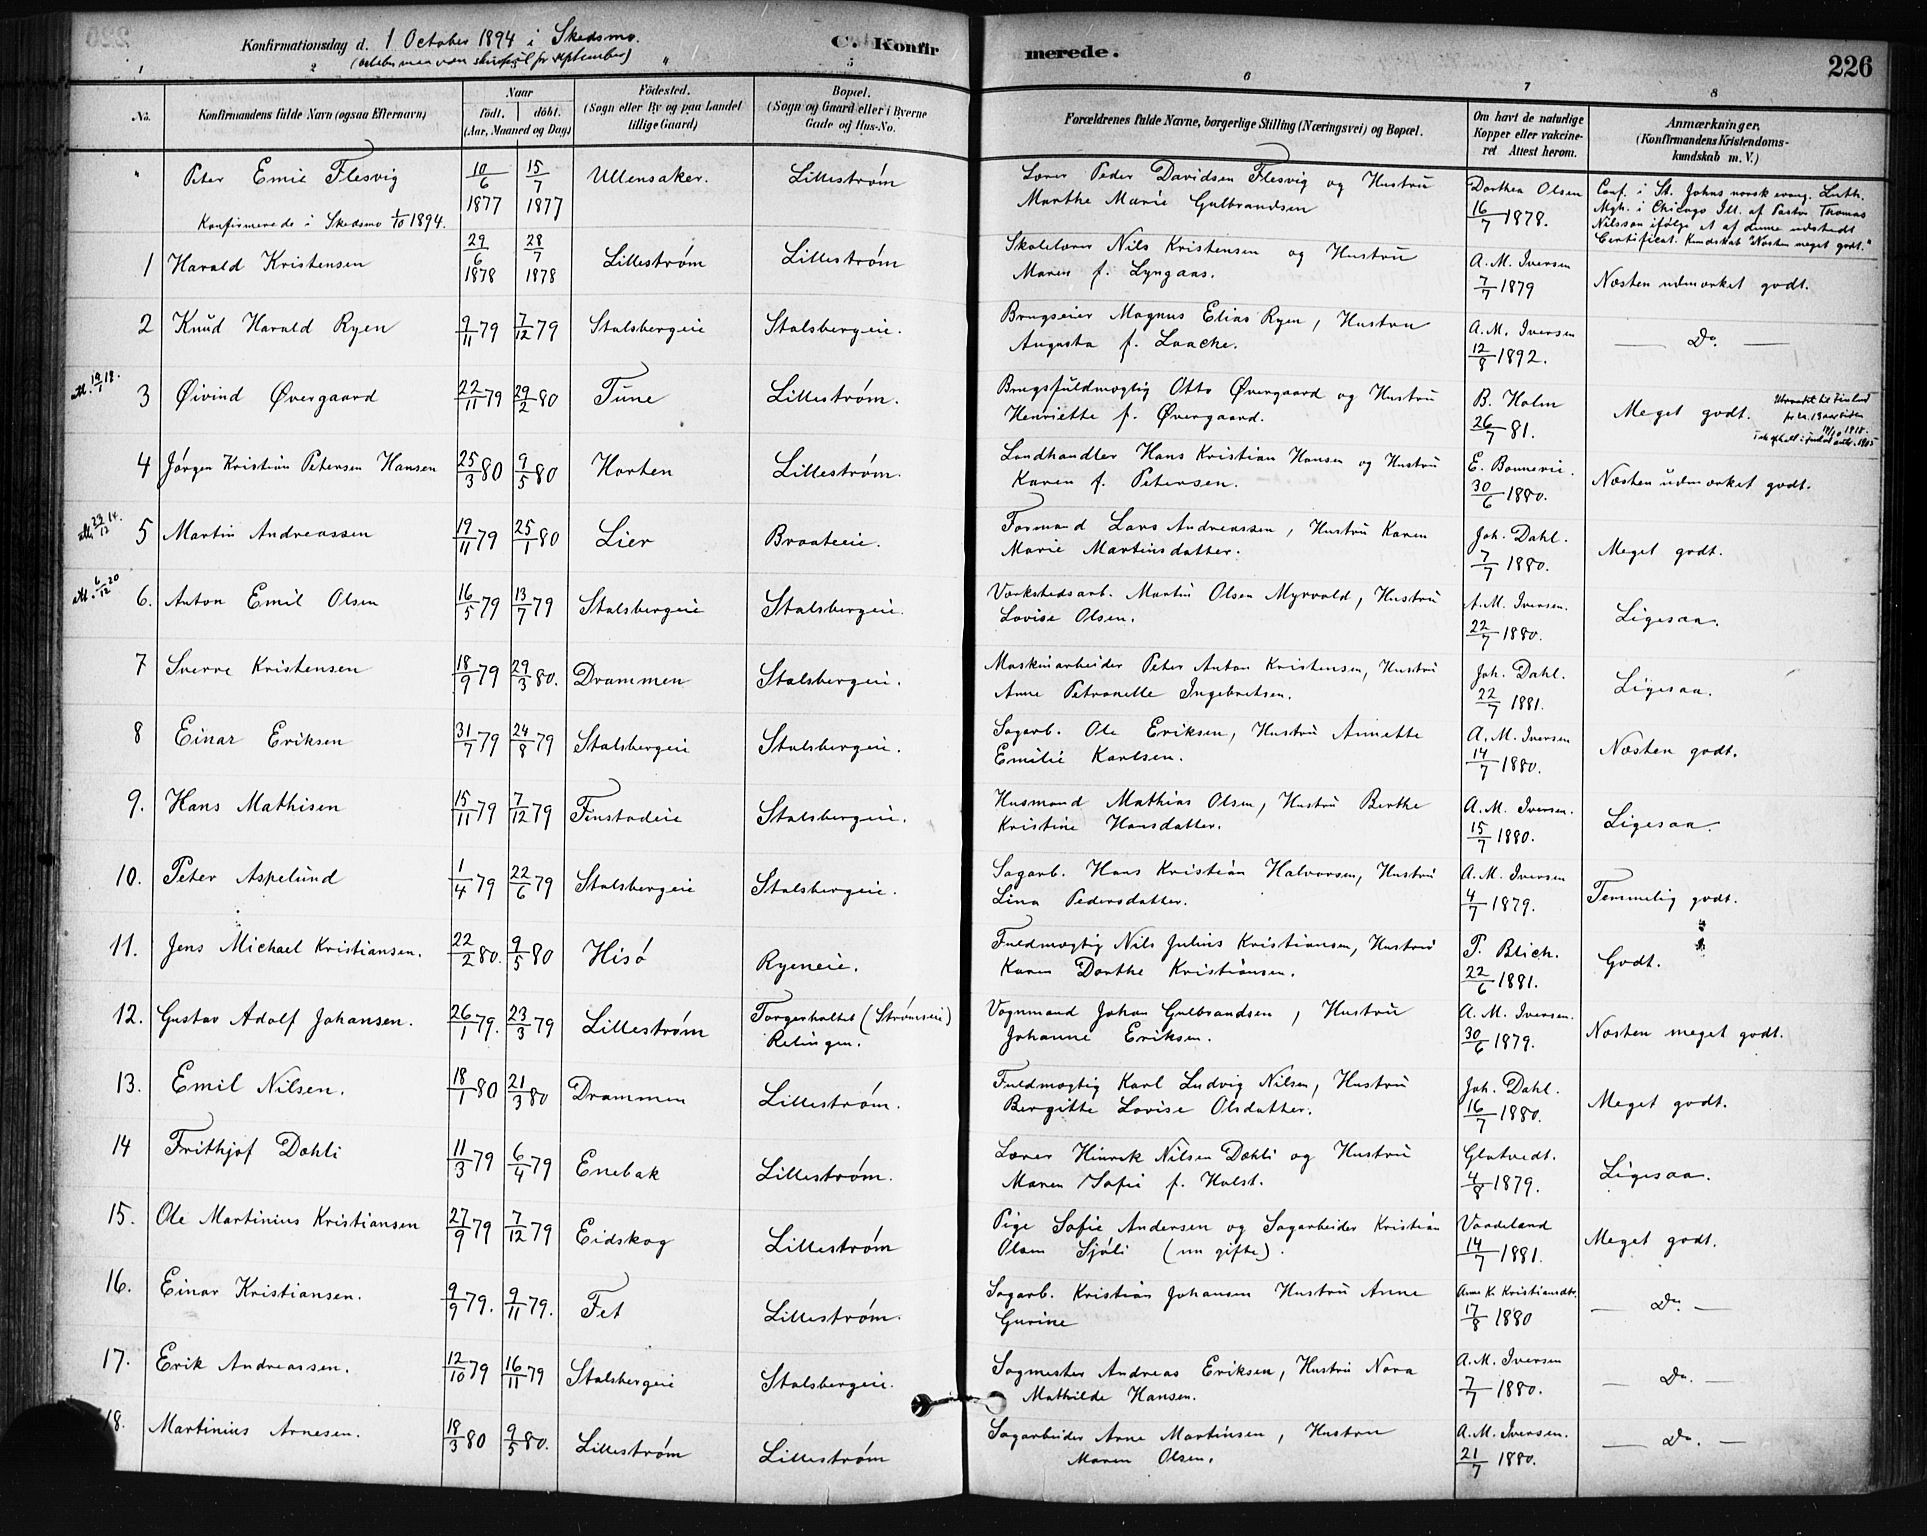 Konfirmationsdag d. 1 October 1894 i Skedsmo.
C. Konfirmerede.
226
1 2 5 6 7 8
No.
Konfirmandens fulde Navn (ogsaa Efternavn)
Naar
født. døbt.
(Aar, Maaned og Dag)
Fødested.
(Sogn eller By og paa Landet
tillige Gaard)
Bopæl.
(Sogn og Gaard eller i Byerne
Gade og Hus-No.
Forældrenes fulde Navne, borgerlige Stilling (Næringsvei) og Bopæl.
Om havt de naturlige
Kopper eller vakcine-
ret Attest herom.
Anmærkninger.
(Konfirmandens Kristendoms-
kundskab m. V.)
" Peter Emil Flesvig 10/6 1877 15/7 1877 Ullensaker. Lillestrøm Lærer Peder Davidsen Flesvig og Hustru
Marthe Marie Gulbrandsen
Dorthea Olsen
16/7 1878.
Conf. i St. Johns norsk evang. Luth.
Mgh. i Chicago Ill. af Pastor Thomas
Nilsson ifølge A af denne udstedt
Certificat. Kundskab "Næsten meget godt."
Konfirmerede i Skedsmo 1/10 1894.
1 Harald Kristensen 29/6 1878 28/7 1878 Lillestrøm Lillestrøm Skolelærer Nils Kristensen og Hustru
Maren f. Lyngaas.
A. M. Iversen
7/7 1879
Næsten udmærket godt.
2 Knud Harald Ryen 9/11 79 7/12 79 Stalsbergeie Stalsbergeie. Brugseier Magnus Elias Ryen, Hustru
Augusta f. Laache.
A. M. Iversen
12/8 1892.
— Do. —
3 Øivind Øvergaard 22/11 79 29/2 80 Tune Lillestrøm. Brugsfuldmægtig Otto Øvergaard og Hustru
Henriette f. Øvergaard.
B. Holm
26/7 81.
Meget godt.
4 Jørgen Kristian Petersen Hansen 25/3 80 9/5 80 Horten Lillestrøm. Landhandler Hans Kristian Hansen og Hustru
Karen f. Petersen.
E. Bonnevie.
30/6 1880.
Næsten udmærket godt.
att. 23/12 14.
5 Martin Andreassen 19/11 79 25/1 80 Lier Braateeie. Formand Lars Andreassen, Hustru Karen
Marie Martinsdatter.
Joh. Dahl.
7/7 1880.
Meget godt.
att. 6/12 20
6. Anton Emil Olsen 16/5 79 13/7 79 Stalsbergeie Stalsbergeie. Værkstedsarb. Martin Olsen Myrvold, Hustru
Lovise Olsen.
A. M. Iversen.
22/7 1880.
Ligesaa.
7 Sverre Kristensen 18/9 79 29/3 80. Drammen Stalsbergeie. Maskinarbeider Peter Anton Kristensen, Hustru
Anne Petronelle Ingebretsen.
Joh. Dahl.
22/7 1881.
Ligesaa.
8 Einar Eriksen 31/7 79 24/8 79 Stalsbergeie Stalsbergeie. Sagarb. Ole Eriksen, Hustru Annette
Emilie Karlsen.
A. M. Iversen
14/7 1880.
Næsten godt.
9. Hans Mathisen 15/11 79 7/12 79 Finstadeie Stalsbergeie. Husmand Mathias Olsen, Hustru Berthe
Kristine Hansdatter.
A. M. Iversen.
15/7 1880.
Ligesaa.
10. Peter Aspelund 1/4 79 22/6 79 Stalsbergeie Stalsbergeie. Sagarb. Hans Kristian Halvorsen, Hustru
Lina Pedersdatter.
A. M. Iversen
4/7 1879.
Temmelig godt.
11. Jens Michael Kristiansen. 22/2 80. 9/5 80 Hisø Ryeneie. Fuldmægtig Nils Julius Kristiansen, Hustru
Karen Dorthe Kristiansen.
P. Blich.
22/6 1881.
Godt.
12. Gustav Adolf Johansen. 26/1 79. 23/3 79 Lillestrøm Torgerholtet (Strømseie)
Relingen.
Vognmand Johan Gulbrandsen, Hustru
Johanne Eriksen.
A. M. Iversen.
30/6 1879.
Næsten meget godt.
13. Emil Nilsen. 18/1 80 21/3 80 Drammen Lillestrøm. Fuldmægtig Karl Ludvig Nilsen, Hustru
Bergitte Lovise Olsdatter.
Joh. Dahl.
16/7 1880.
Meget godt.
14 Frithjof Dahli 11/3 79 6/4 79 Enebak Lillestrøm. Lærer Hinrik Nilsen Dahli og Hustru
Maren Sofie f. Holst.
Glatvedt.
4/8 1879.
Ligesaa.
15. Ole Martinius Kristiansen 27/9 79 7/12 79 Eidskog Lillestrøm Pige Sofie Andersen og Sagarbeider Kristian
Olsen Sjøli (nu gifte).
Vaadeland
14/7 1881.
Meget godt.
16. Einar Kristiansen. 9/9 79. 9/11 79. Fet Lillestrøm. Sagarb. Kristian Johansen Hustru Anne
Gurine
Anne K. Kristiansdtr.
17/8 1880
— Do. —
17. Erik Andreassen. 12/10 79 16/11 79 Stalsbergeie Stalsbergeie. Sagmester Andreas Eriksen, Hustru Nora
Mathilde Hansen.
A. M. Iversen
7/7 1880.
— Do. —
18. Martinius Arnesen. 18/3 80 9/5 80. Lillestrøm Lillestrøm Sagarbeider Arne Martinsen, Hustru
Maren Olsen.
A. M. Iversen.
21/7 1880.
— Do. —